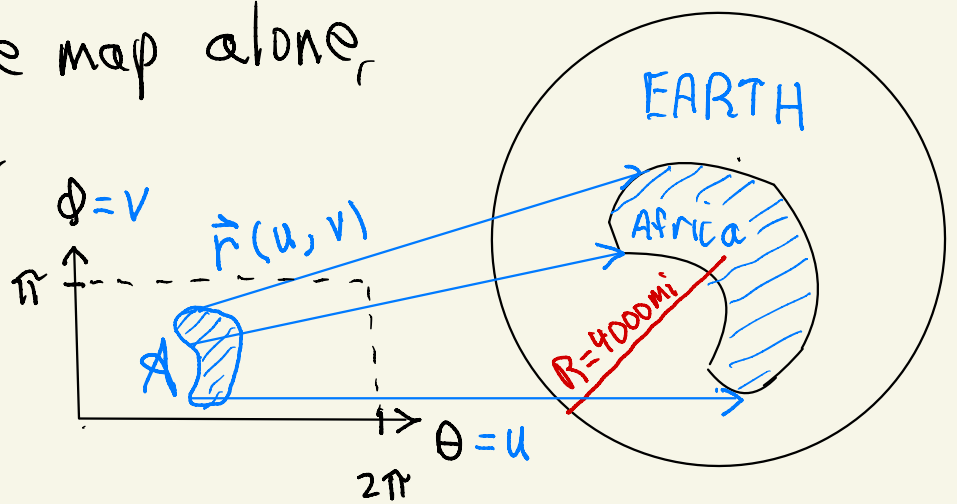 e map alone,
EARTH
ϕ = v
r⃗(u, v)
Africa
π
R=4000mi
A
θ = u
2π